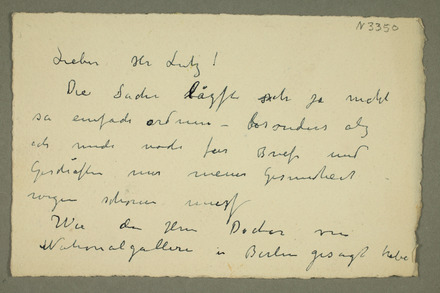 N 3350
Lieber Hr Lutz!
Die Sache läßt sich ja nicht
so einfach ordnen – besonders als
ich mich nach für Briefe und
Geschäften nur meiner Gesundheit
wegen schonen muß
Wie der Herr Doctor von
Nationalgallerie in Berlin gesagt habe